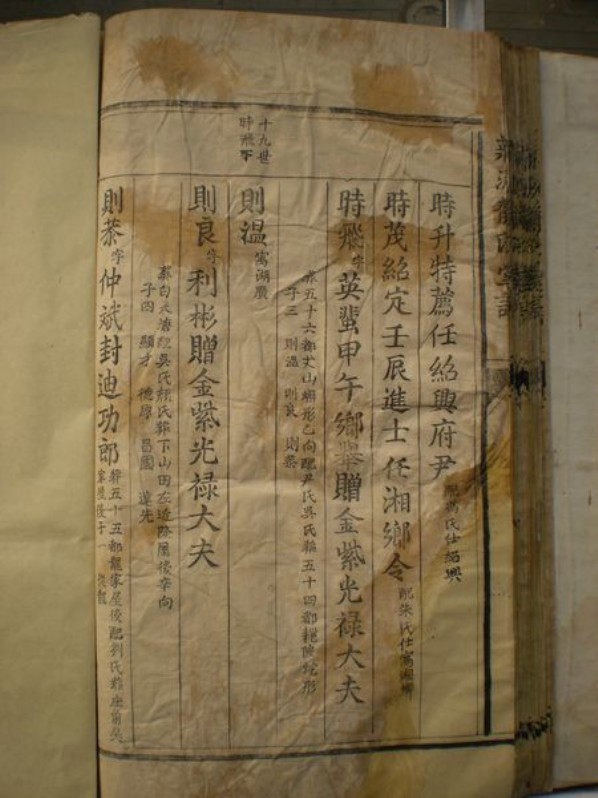 時升特薦任紹興府尹 配馮氏仕紹興
時茂紹定壬辰進士任湘鄉令 配朱氏仕寓湘鄉
時飛字英蜚甲午鄉舉贈金紫光禄大夫
葬五十六都犬山蜈形乙向配尹氏吳氏葬五十四都蛇形
子三 則温 則良 則恭
十九世
時飛下
則温 寓湖廣
則良字利彬贈金紫光禄大夫
配吳氏顏氏葬下山田左邊隂層後辛向
子四 顯才 德厚 昌國 達先
則恭字仲斌封迪功郎
葬五十五都龍家屋後配劉氏葬
家屋後子一